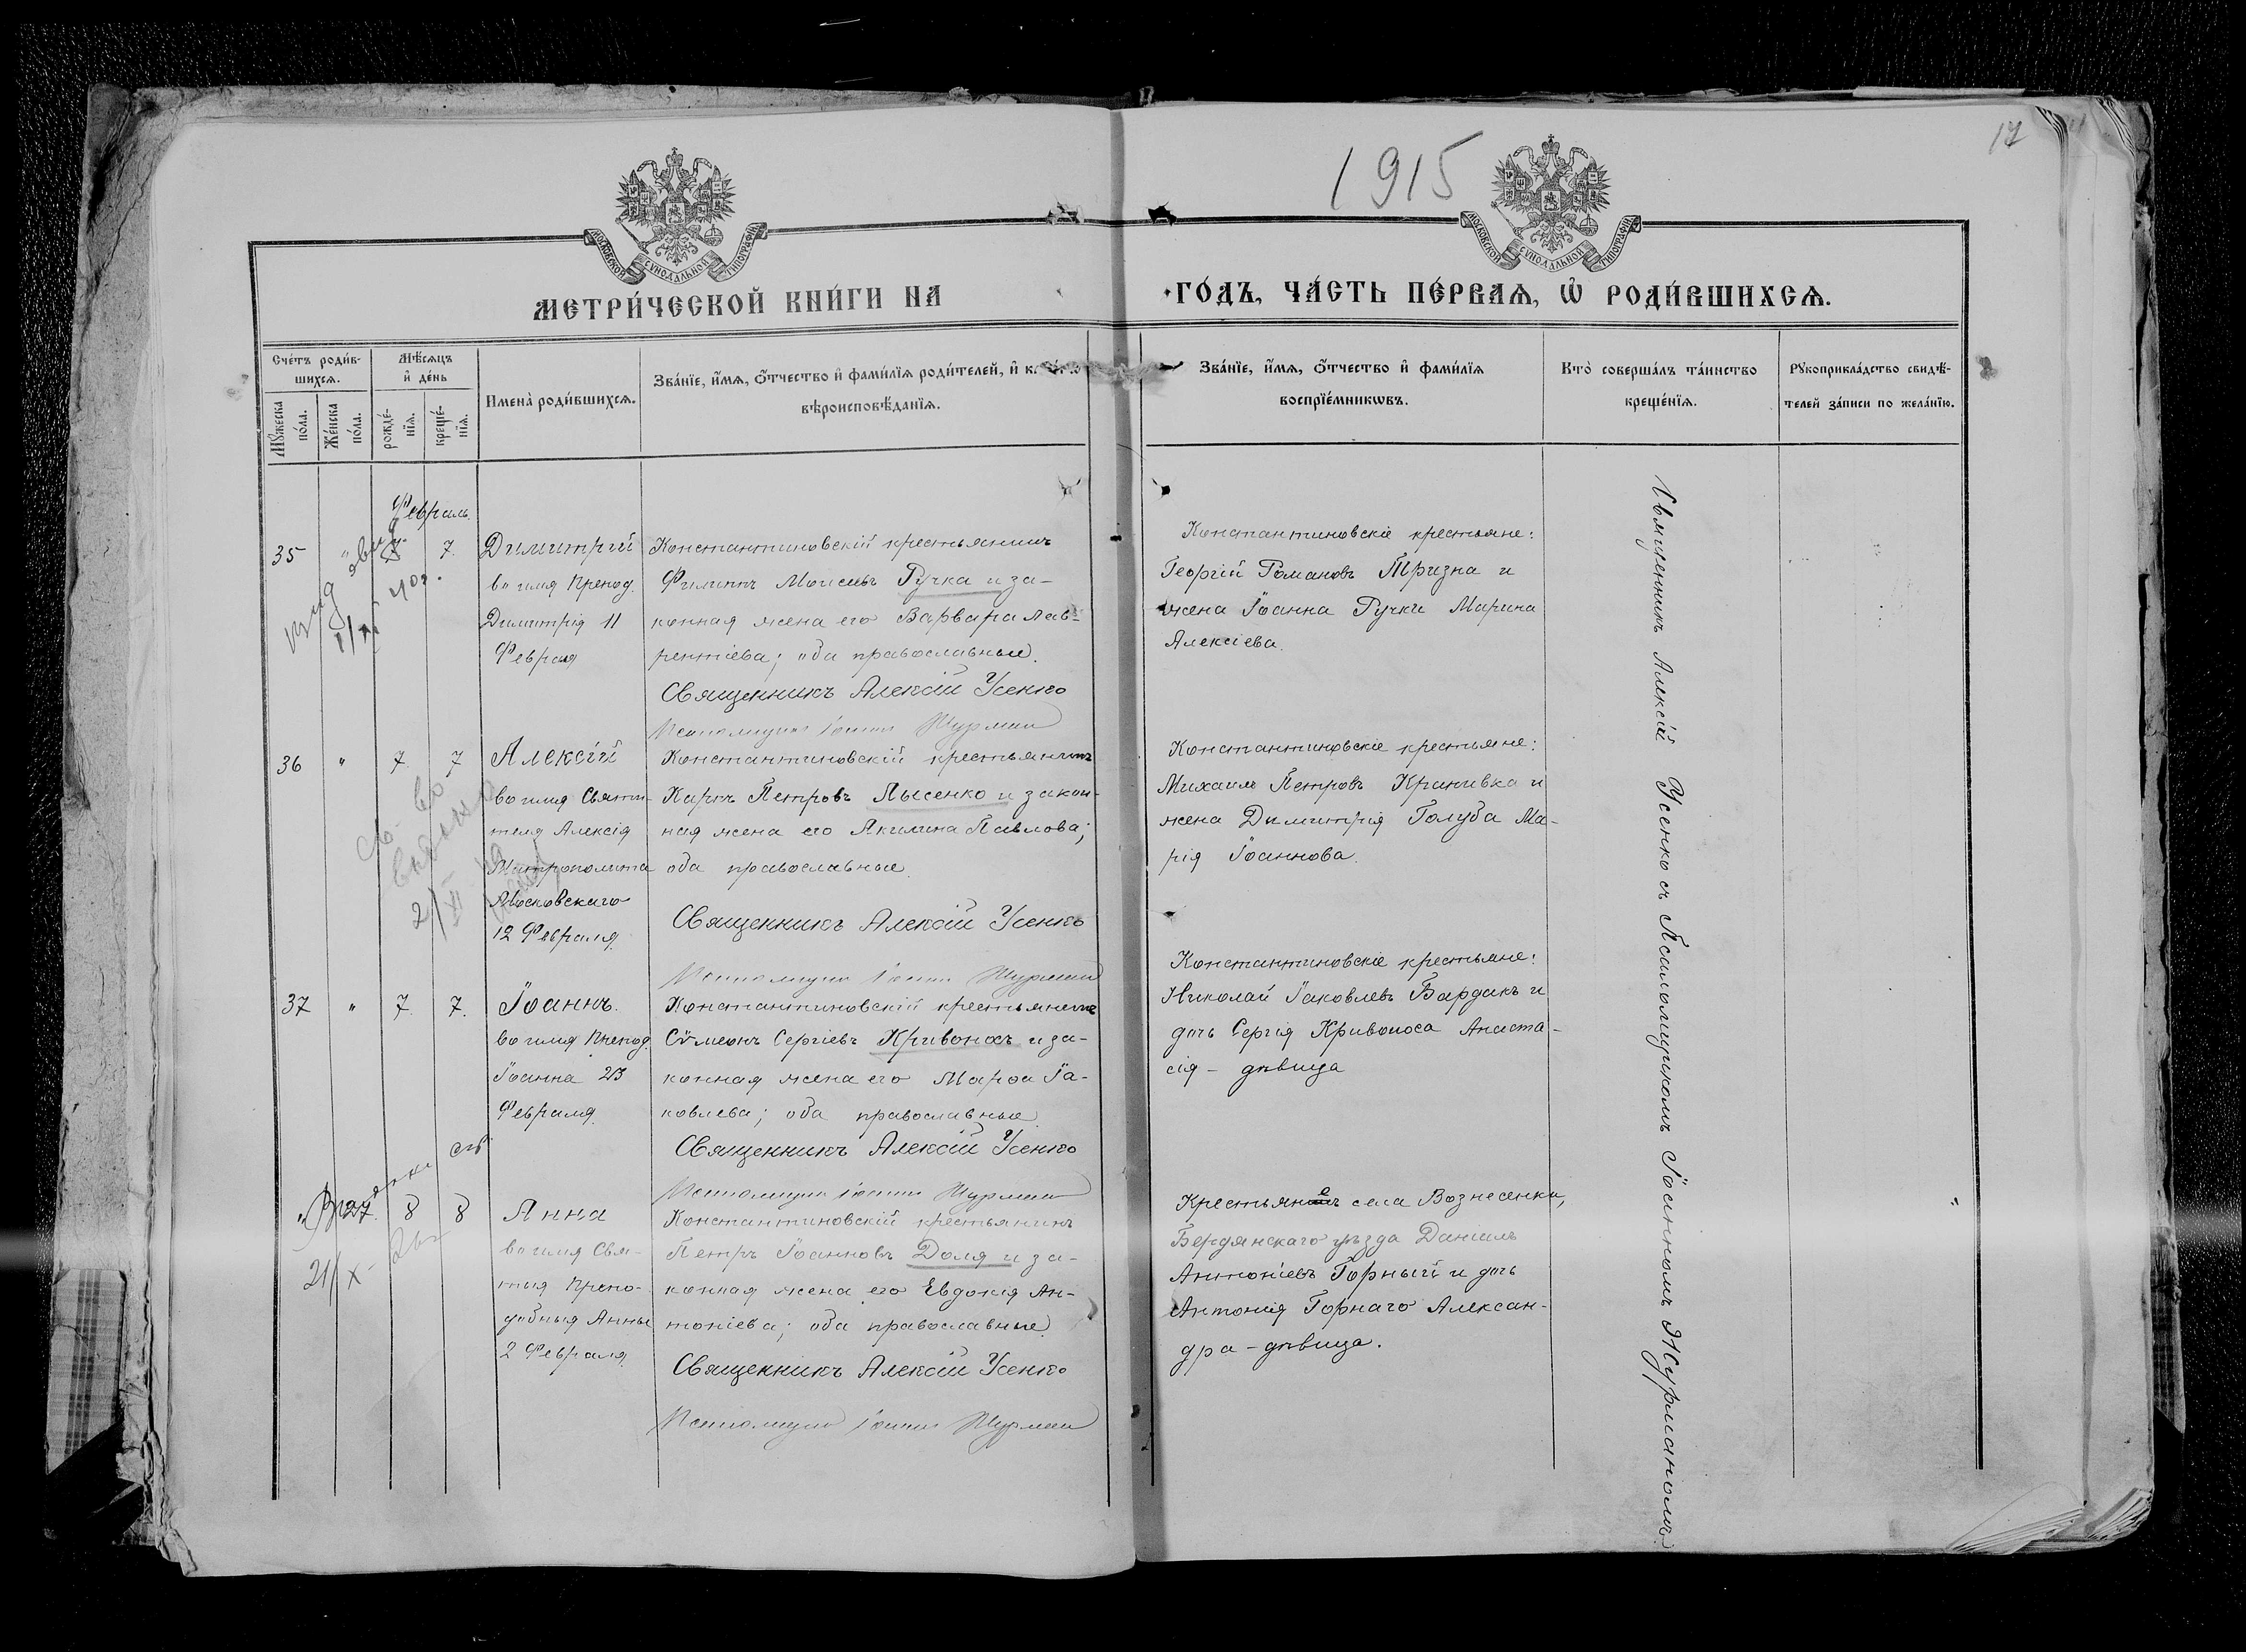 1915
17
МОСКОВСКОЙ СѴНОДАЛЬНОЙ ТИПОГРАФІИ
МОСКОВСКОЙ СѴНОДАЛЬНОЙ ТИПОГРАФІИ
МЕТРИ́ЧЕСКОЙ КНИ́ГИ НА
ГО́ДЪ, ЧА́СТЬ ПЕ́РВАѦ, Ѡ҆ РОДИ́ВШИХСѦ.
Сче́тъ роди́в-
шихсѧ.
Мꙋ́жеска
по́ла.
Же́нска
по́ла.
Мѣ́сѧцъ
и҆ де́нь
рожде́-
нїѧ.
креще́-
нїѧ.
Имена̀ роди́вшихсѧ.
Зва́нїе, и҆́мѧ, ѻ҆́тчество и҆ фами́лїѧ роди́телей, и҆
вѣроисповѣ́данїѧ.
Зва́нїе, и҆́мѧ, ѻ҆́тчество и҆ фами́лїѧ
воспрїе́мникѡвъ.
Кто̀ соверша́лъ та́инство
креще́нїѧ.
Рꙋкоприкла́дство свидѣ́-
телей за́писи по жела́нїю.
Февраль.
35
"
5
7.
Димитрій
во имя Препод.
Димитрія 11
Февраля
Константиновскій крестьянинъ
Филиппъ Моисеевъ Ручка и за-
конная жена его Варвара Лав-
рентіева; оба православные.
Священникъ Алексій Усенко
Псаломщикъ Іоаннъ Журманъ
Константиновскіе крестьяне:
Георгій Романовъ Тризна и
жена Іоанна Ручки Марина
Алексіева.
36
"
7
7
Алексій
во имя Святи-
теля Алексія
Митрополита
Московскаго
12 Февраля.
Константиновскій крестьянинъ
Карпъ Петровъ Лысенко и закон-
ная жена его Акилина Павлова;
оба православные.
Священникъ Алексій Усенко
Псаломщикъ Іоаннъ Журманъ
Константиновскіе крестьяне:
Михаилъ Петровъ Крапивка и
жена Димитрія Голуба Ма-
рія Іоаннова.
37
"
7.
7.
Іоаннъ.
во имя Препод.
Іоанна 23
Февраля.
Константиновскій крестьянинъ
Сѵмеонъ Сергіевъ Кривоносъ и за-
конная жена его Марѳа Іа-
ковлева; оба православные.
Священникъ Алексій Усенко
Псаломщикъ Іоаннъ Журманъ
Константиновскіе крестьяне:
Николай Іаковлевъ Бардакъ и
дочь Сергія Кривоноса Анаста-
сія - дѣвица
"
27.
8
8
21/X
Анна
во имя Свя-
тыя Препо-
добныя Анны
2 Февраля.
Константиновскій крестьянинъ
Петръ Іоанновъ Доля и за-
конная жена его Евдокія Ан-
тоніева; оба православные.
Священникъ Алексій Усенко
Псаломщикъ Іоаннъ Журманъ
Крестьяне села Вознесенки,
Бердянскаго уѣзда Даніилъ
Антоніевъ Горный и дочь
Антонія Горнаго Александ-
дра - дѣвица.
Священникъ Алексій Усенко съ Псаломщикомъ Іоанномъ Журманомъ.